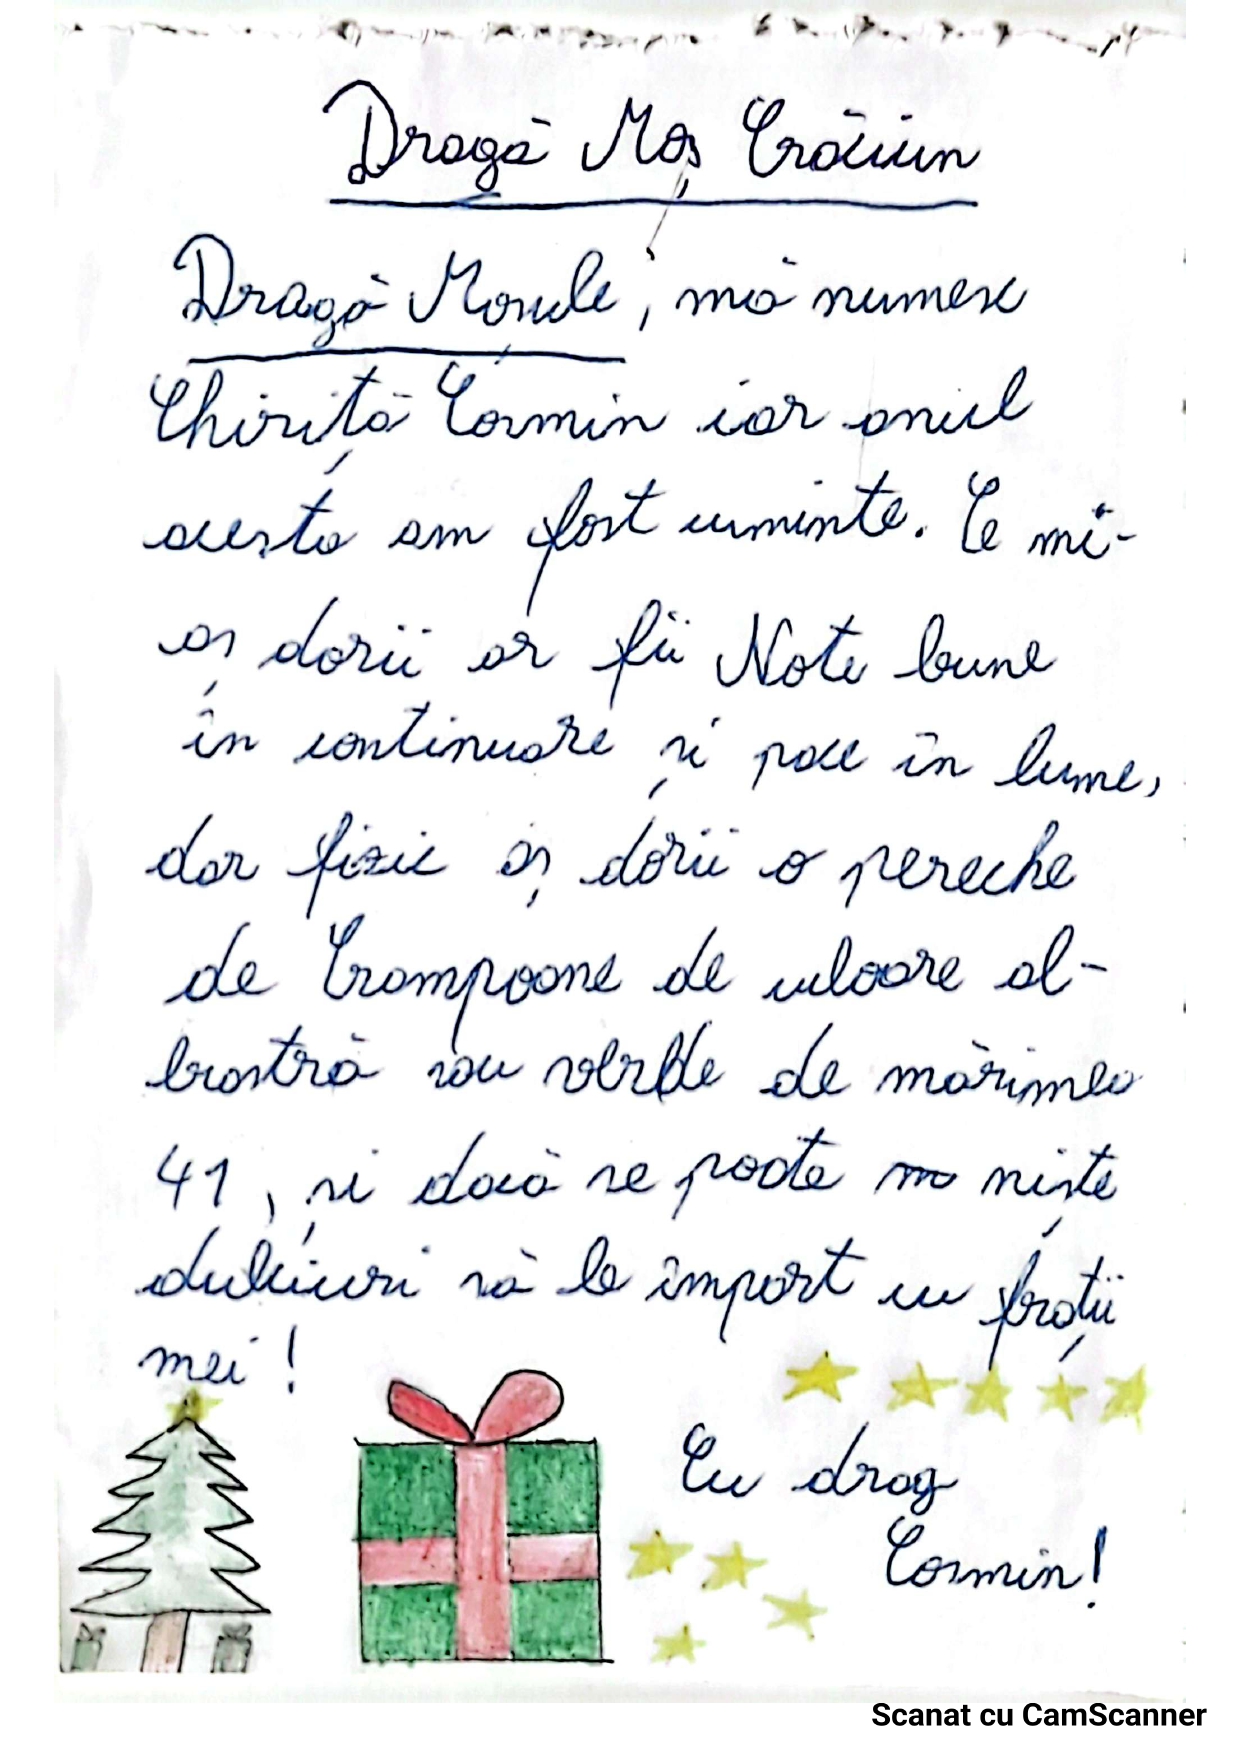 Dragă Moș Crăciun
Dragă Moșule, mă numesc
Chiriță Cosmin iar anul
acesta am fost cuminte. Ce mi-
aș dorii ar fii Note bune
în continuare și pace în lume,
dar fizic aș dorii o pereche
de Crampoane de culoare al-
bastră sau verde de mărimea
41, și dacă se poate niște
dulciuri să le impart cu frații
mei!
Cu drag
Cosmin!
Scanat cu CamScanner